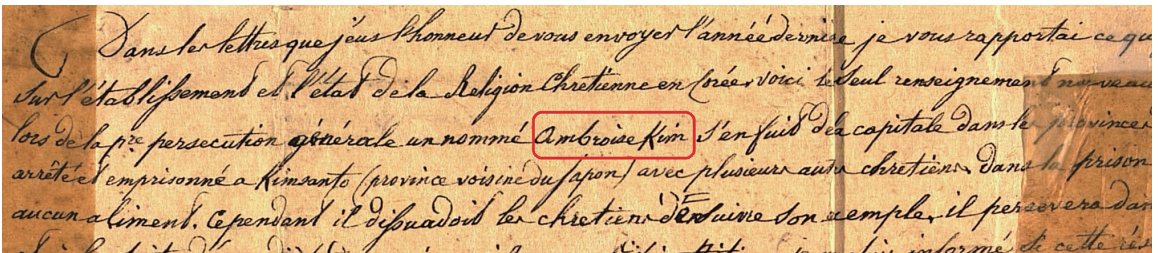 Dans les lettres que j'eus l'honneur de vous envoyer l'année dernière je vous rapportai ce qu
sur l'établissement et l'état de la Religion Chretienne en Corée, voici le seul renseignement nouveau
lors de la pre persecution générale un nommé Ambroise Kim s'enfuit de la capitale dans les provinces
arrêté et emprisonné a Kimsanto (province voisine du Japon) avec plusieurs autres chretiens, dans la prison
aucun aliment. Cependant il dissuadoit les chretiens d'ensuivre son exemple, il persevera dan
informé si cette rés